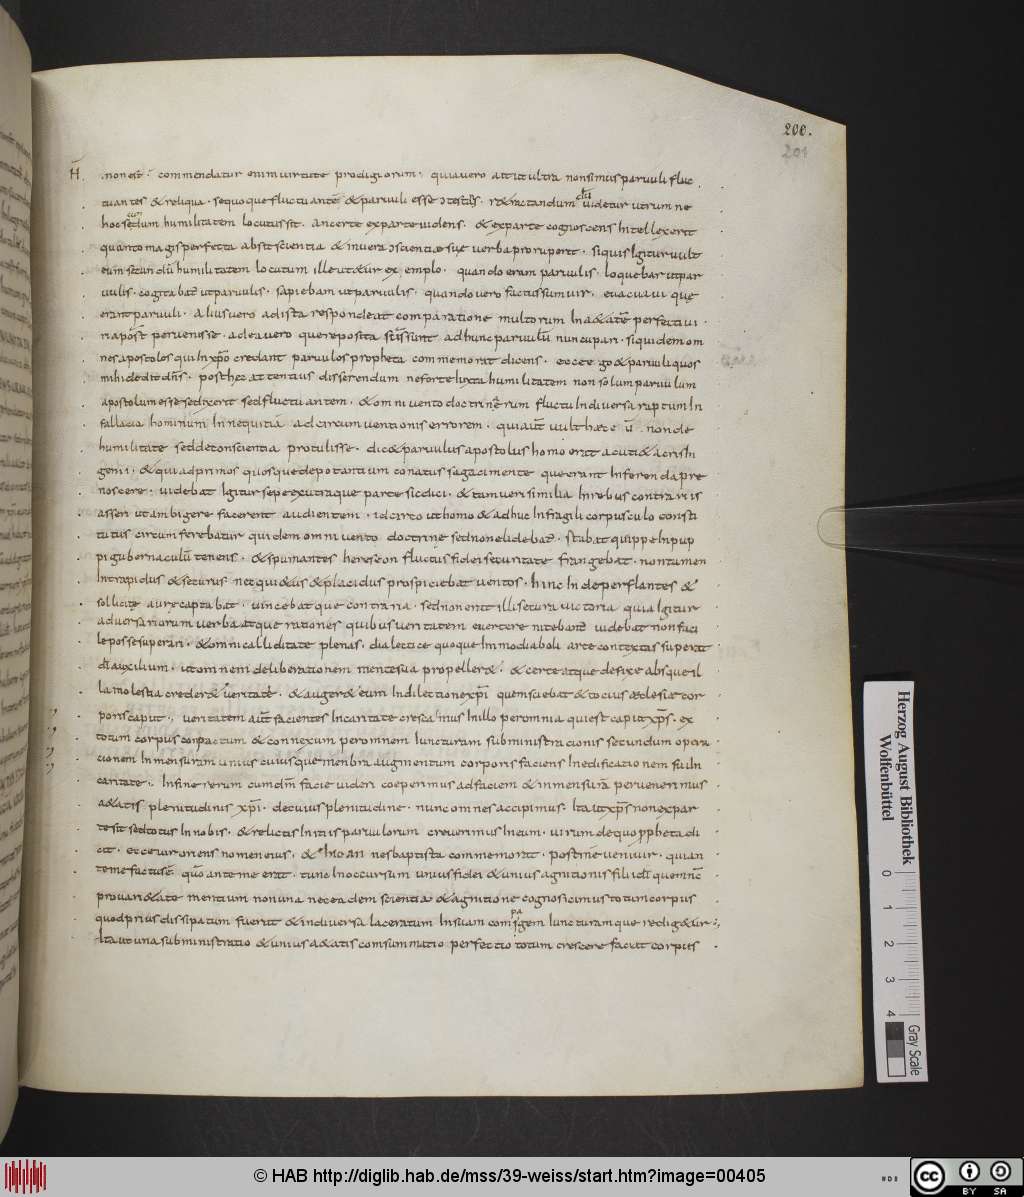 200.
201
H̄ . non est . commendatur enim virtute prodigiorum . quia vero ait ut ultra non simus parvuli fluc
tuantes & reliqua . sequo que fluctuantē & parvuli esse
hoc secundum humilitatem locutus sit . an certe ex parte videns . & ex parte cognoscens intellexerit
quanto magis perfecta abstscientia & in vera conscientiæ suę verba proruperit . siquis igitur vult
eum secundū humilitatem locutum ille ut&ur exemplo . quando eram parvulis . loquebar ut par
vulis . cogitabā ut parvulis . sapiebam ut parvulis . quando vero factus sum vir . evacuavi quę
erant parvuli . alius vero ad ista respondeat comparatione multorum in a&atē perfecta vi
ri apost̄ pervenisse . ad ea vero que reposita st̄ sunt ad hunc parvulū nuncupari . siquidem om
nes apostolos qui in xp̄o credant parvulos propheta commemorat dicens . ecce ego & parvuli quos
mihi dedit dn̄s . post hęc attentius disserendum ne forte iuxta humilitatem non solum parvulum
apostolum esse se dixerit sed fluctuantem . & omni vento doctrinę rum fluctu in diversa raptum in
fallacia hominum in nequitia ad circumventionis errorem . quia ut̄ vult hæc ū . non de
humilitate sed de conscientia protulisse . dic& parvulus apostolus homo erat acuti & acris in
genii . & qui ad primos quosque depotantium conatus sagaci mente que erant inferenda pre
noscere . videbat igitur sepe ex utraque parte sic dici . & tam verisimilia in rebus contrariis
asseri ut ambigere facerent audientem . idcirco ut homo & adhuc in fragili corpusculo consti
tutus circumferebatur quidem omni vento doctrine sed non elidebat̄ . stabat quippe in pup
pi gubernaculū tenens . & spumantes hereseon fluctus fidei securitate frangebat . non tamen
intrapidus & securus nec qui&us & placidus prospiciebat ventos . hinc inde perflantes &
sollicite aure captabat . vincebat que contraria . sed non erat illi secura victoria quia igitur
adversariorum verba atque rationes quibus veritatem evertere nitebant̄ videbat non faci
le posse superari . & omni calliditate plenas . dialectice quoque immo diaboli arte contextas superat
dī auxilium . ut omnem deliberationem mentes via propeller& . & certe atque defixe absque il
la molestia creder& veritatē . & auger& eum in dilectione xp̄i quem sciebat & tocius æclesiæ cor
poris caput . veritatem aut̄ facientes in caritate crescamus in illo per omnia qui est caput xp̄s . ex
totum corpus conpactum & connexum per omnem iuncturam subministracionis secundum opera
cionem in mensuram unius cuiusque menbra augmentum corporis faciens in edificationem sui in
caritate . In fine rerum cum dm̄ facie videri coeperimus ad faciem & in mensurā pervenerimus
a&atis plenitudinis xp̄i . de cuius plenitudine . nunc omnes accipimus . ita ut xp̄s non ex par
te sit sed totus in nobis . & relictis initiis parvulorum creverimus in eum . virum de quo ppheta di
cit . ecce vir oriens nomen eius . & iohannes baptista commemorat . post me venit vir . qui an
te me factus ē . quō ante me erat . tunc in occursum unius fidei & unius agnitionis filii dī quem nc̄
pro vari&ate mentium non una nec eadem scientia & agnitione cognoscimus totum corpus
quod prius dissipatum fuerit & in diversa laceratum in suam compagem iuncturamque redig&ur .
ita ut una subministratio & unius a&atis comsummatio perfectio totum crescere faciat corpus .
Herzog August Bibliothek
Wolfenbüttel
0 1 2 3 4
Gray Scale
© HAB http://diglib.hab.de/mss/39-weiss/start.htm?image=00405
cc BY SA